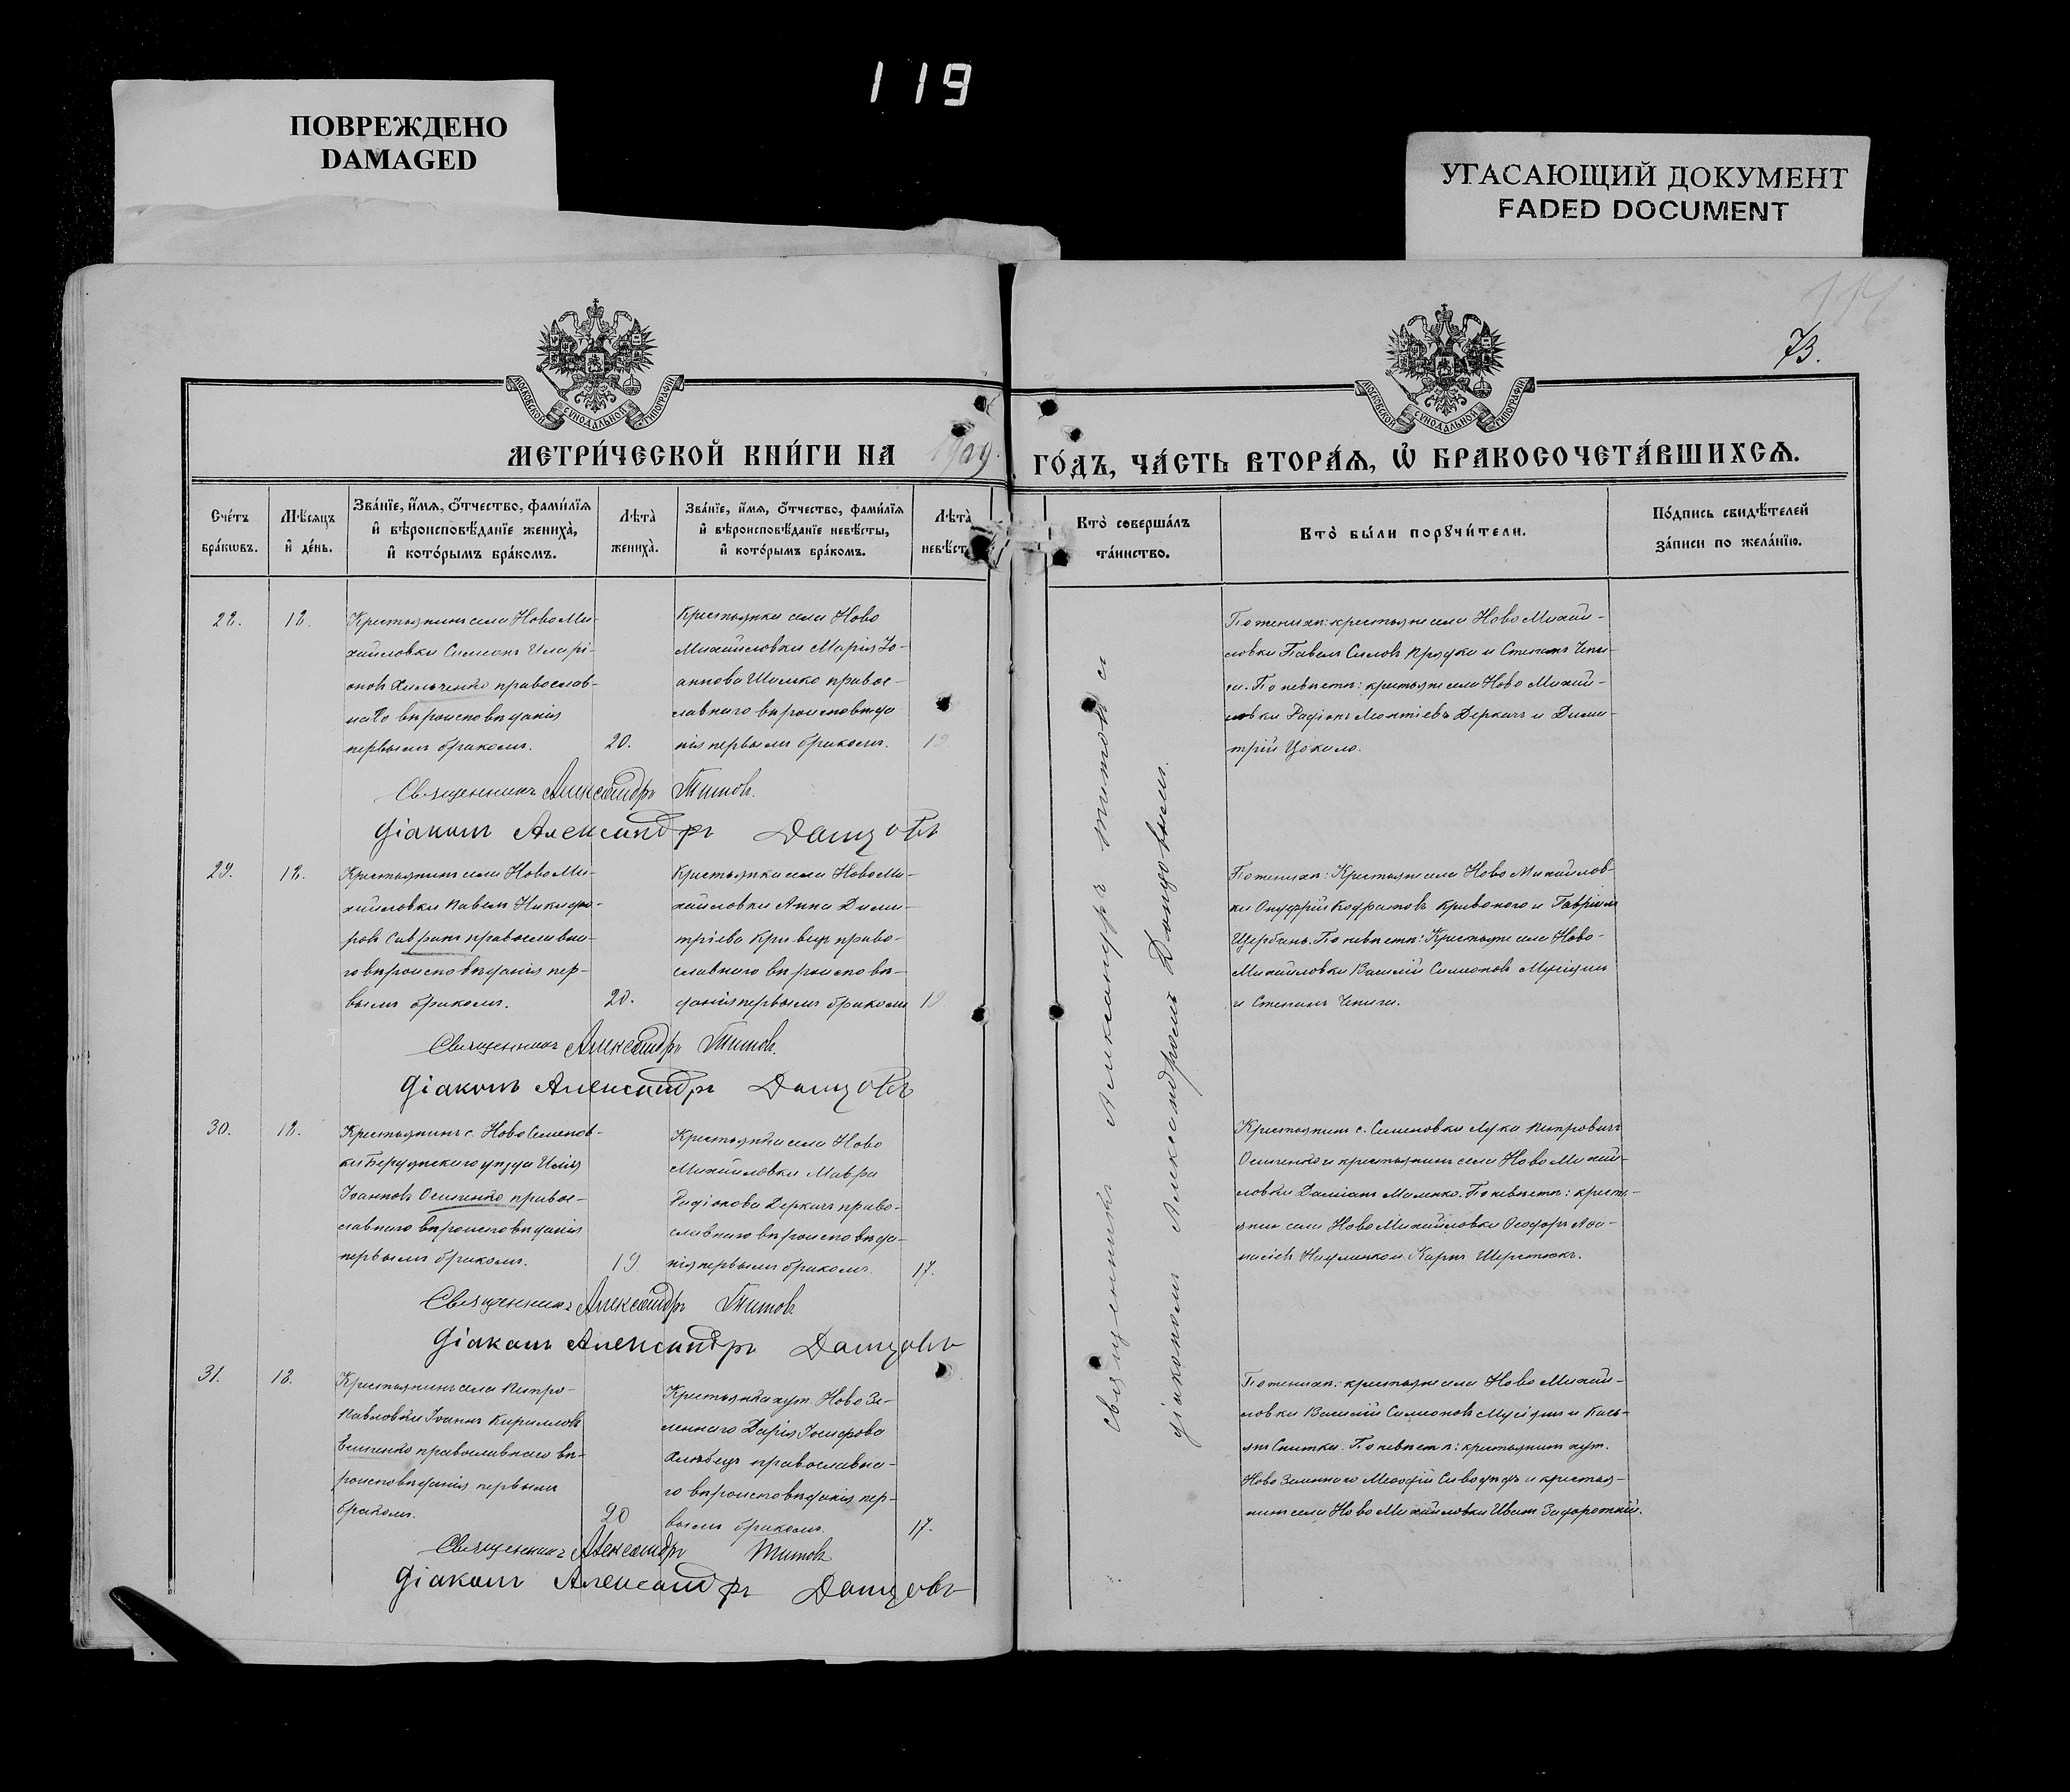 119
ПОВРЕЖДЕНО
DAMAGED
УГАСАЮЩИЙ ДОКУМЕНТ
FADED DOCUMENT
73.
МОСКОВСКОЙ СѴНОДАЛЬНОЙ ТИПОГРАФІИ
МОСКОВСКОЙ СѴНОДАЛЬНОЙ ТИПОГРАФІИ
МЕТРИ́ЧЕСКОЙ КНИ́ГИ НА
ГО́ДЪ, ЧА́СТЬ ВТОРА́Ѧ, Ѡ҆ БРАКОСОЧЕТА́ВШИХСѦ.
Счéтъ бра́кѡвъ.
Мѣ́сяцъ и҆ дéнь.
Зва́нїе, и҆́мѧ, ѻ҆́тчество, фами́лїѧ
и҆ вѣроисповѣ́данїе жениха̀,
и҆ кото́рымъ бра́комъ.
Лѣта̀ жениха̀.
Зва́нїе, и҆́мѧ, ѻ҆́тчество, фами́лїѧ
и҆ вѣроисповѣ́данїе невѣ́сты,
и҆ кото́рымъ бра́комъ.
Лѣта̀
Кто̀ совершáлъ та́инство.
Кто̀ бы́ли порꙋчи́тели.
По́дпись свидѣ́телей
за́писи по жела́нїю.
28.
18.
Крестьянинъ села Ново Ми-
хайловки Симеонъ Иларі-
оновъ Хильченко православ-
наго вѣроисповѣданія
первымъ бракомъ.
20.
Крестьянка села Ново
Михайловки Марія Іо-
аннова Шимко правос-
лавнаго вѣроисповѣда
нія первымъ бракомъ.
По женихѣ: крестьяне села Ново Михай-
ловки Павелъ Силовъ и Степанъ Чепи-
га. По невѣстѣ: крестьяне села Ново Михай-
ловки Радіонъ Леонтіевъ Деркачъ и Дими-
трій Цокало.
Священникъ Александръ Титовъ.
Діаконъ Александръ Донцовъ
29.
18.
Крестьянинъ села Ново Ми-
хайловки Павелъ Никифо-
ровъ Савранъ православна-
го вѣроисповѣданія пер-
вымъ бракомъ.
20.
Крестьянка села Ново Ми-
хайловки Анна Дими-
тріева Кривецъ право-
славнаго вѣроисповѣ-
данія первымъ бракомъ
По женихѣ: Крестьяне села Ново Михайлов-
ки Онуфрій Кодратовъ Кривоного и Гавріилъ
Щербина. По невѣстѣ: Крестьяне села Ново-
Михайловки Василій Симеоновъ
и Степанъ Чепига.
Священникъ Александръ Титовъ.
Діаконъ Александръ Донцовъ
30.
18.
Крестьянинъ с. Ново Семенов-
ки Бердянскаго уѣзда Илія
Іоанновъ Осипенко правос-
лавнаго вѣроисповѣданія
первымъ бракомъ.
19
Крестьянка села Ново
Михайловки Мавра
Радіонова Деркачъ право-
славнаго вѣроисповѣда-
нія первымъ бракомъ.
17.
Крестьянинъ с. Семеновки Лука Петровичъ
Осипенко и крестьянинъ села Ново Михай-
ловки Даміанъ Маменко. По невѣстѣ: кресть-
яни села Ново Михайловки Ѳеодоръ Аѳа-
насіевъ и Карпъ Шерстюкъ.
Священникъ Александръ Титовъ
Діаконъ Александръ Донцовъ
31.
18.
Крестьянинъ села Петро-
Павловки Іоаннъ Кирилловъ
Евтенко православнаго вѣ-
роисповѣданія первымъ
бракомъ.
20
Крестьянка хут. Ново Зе-
леннаго Дарія Іосифова
православна-
го вѣроисповѣданія пер-
вымъ бракомъ.
17.
По женихѣ: крестьяне села Ново Михай-
ловки Василій Симеоновъ и Кась-
янъ Снитка. По невѣстѣ: крестьянинъ хут.
Ново Зеленнаго Меѳодій и крестья-
нинъ села Ново Михайловки Иванъ Задорожній.
Священникъ Александръ Титовъ
Діаконъ Александръ Донцовъ
Священникъ Александръ Титовъ съ
діакономъ Александромъ Донцовымъ.